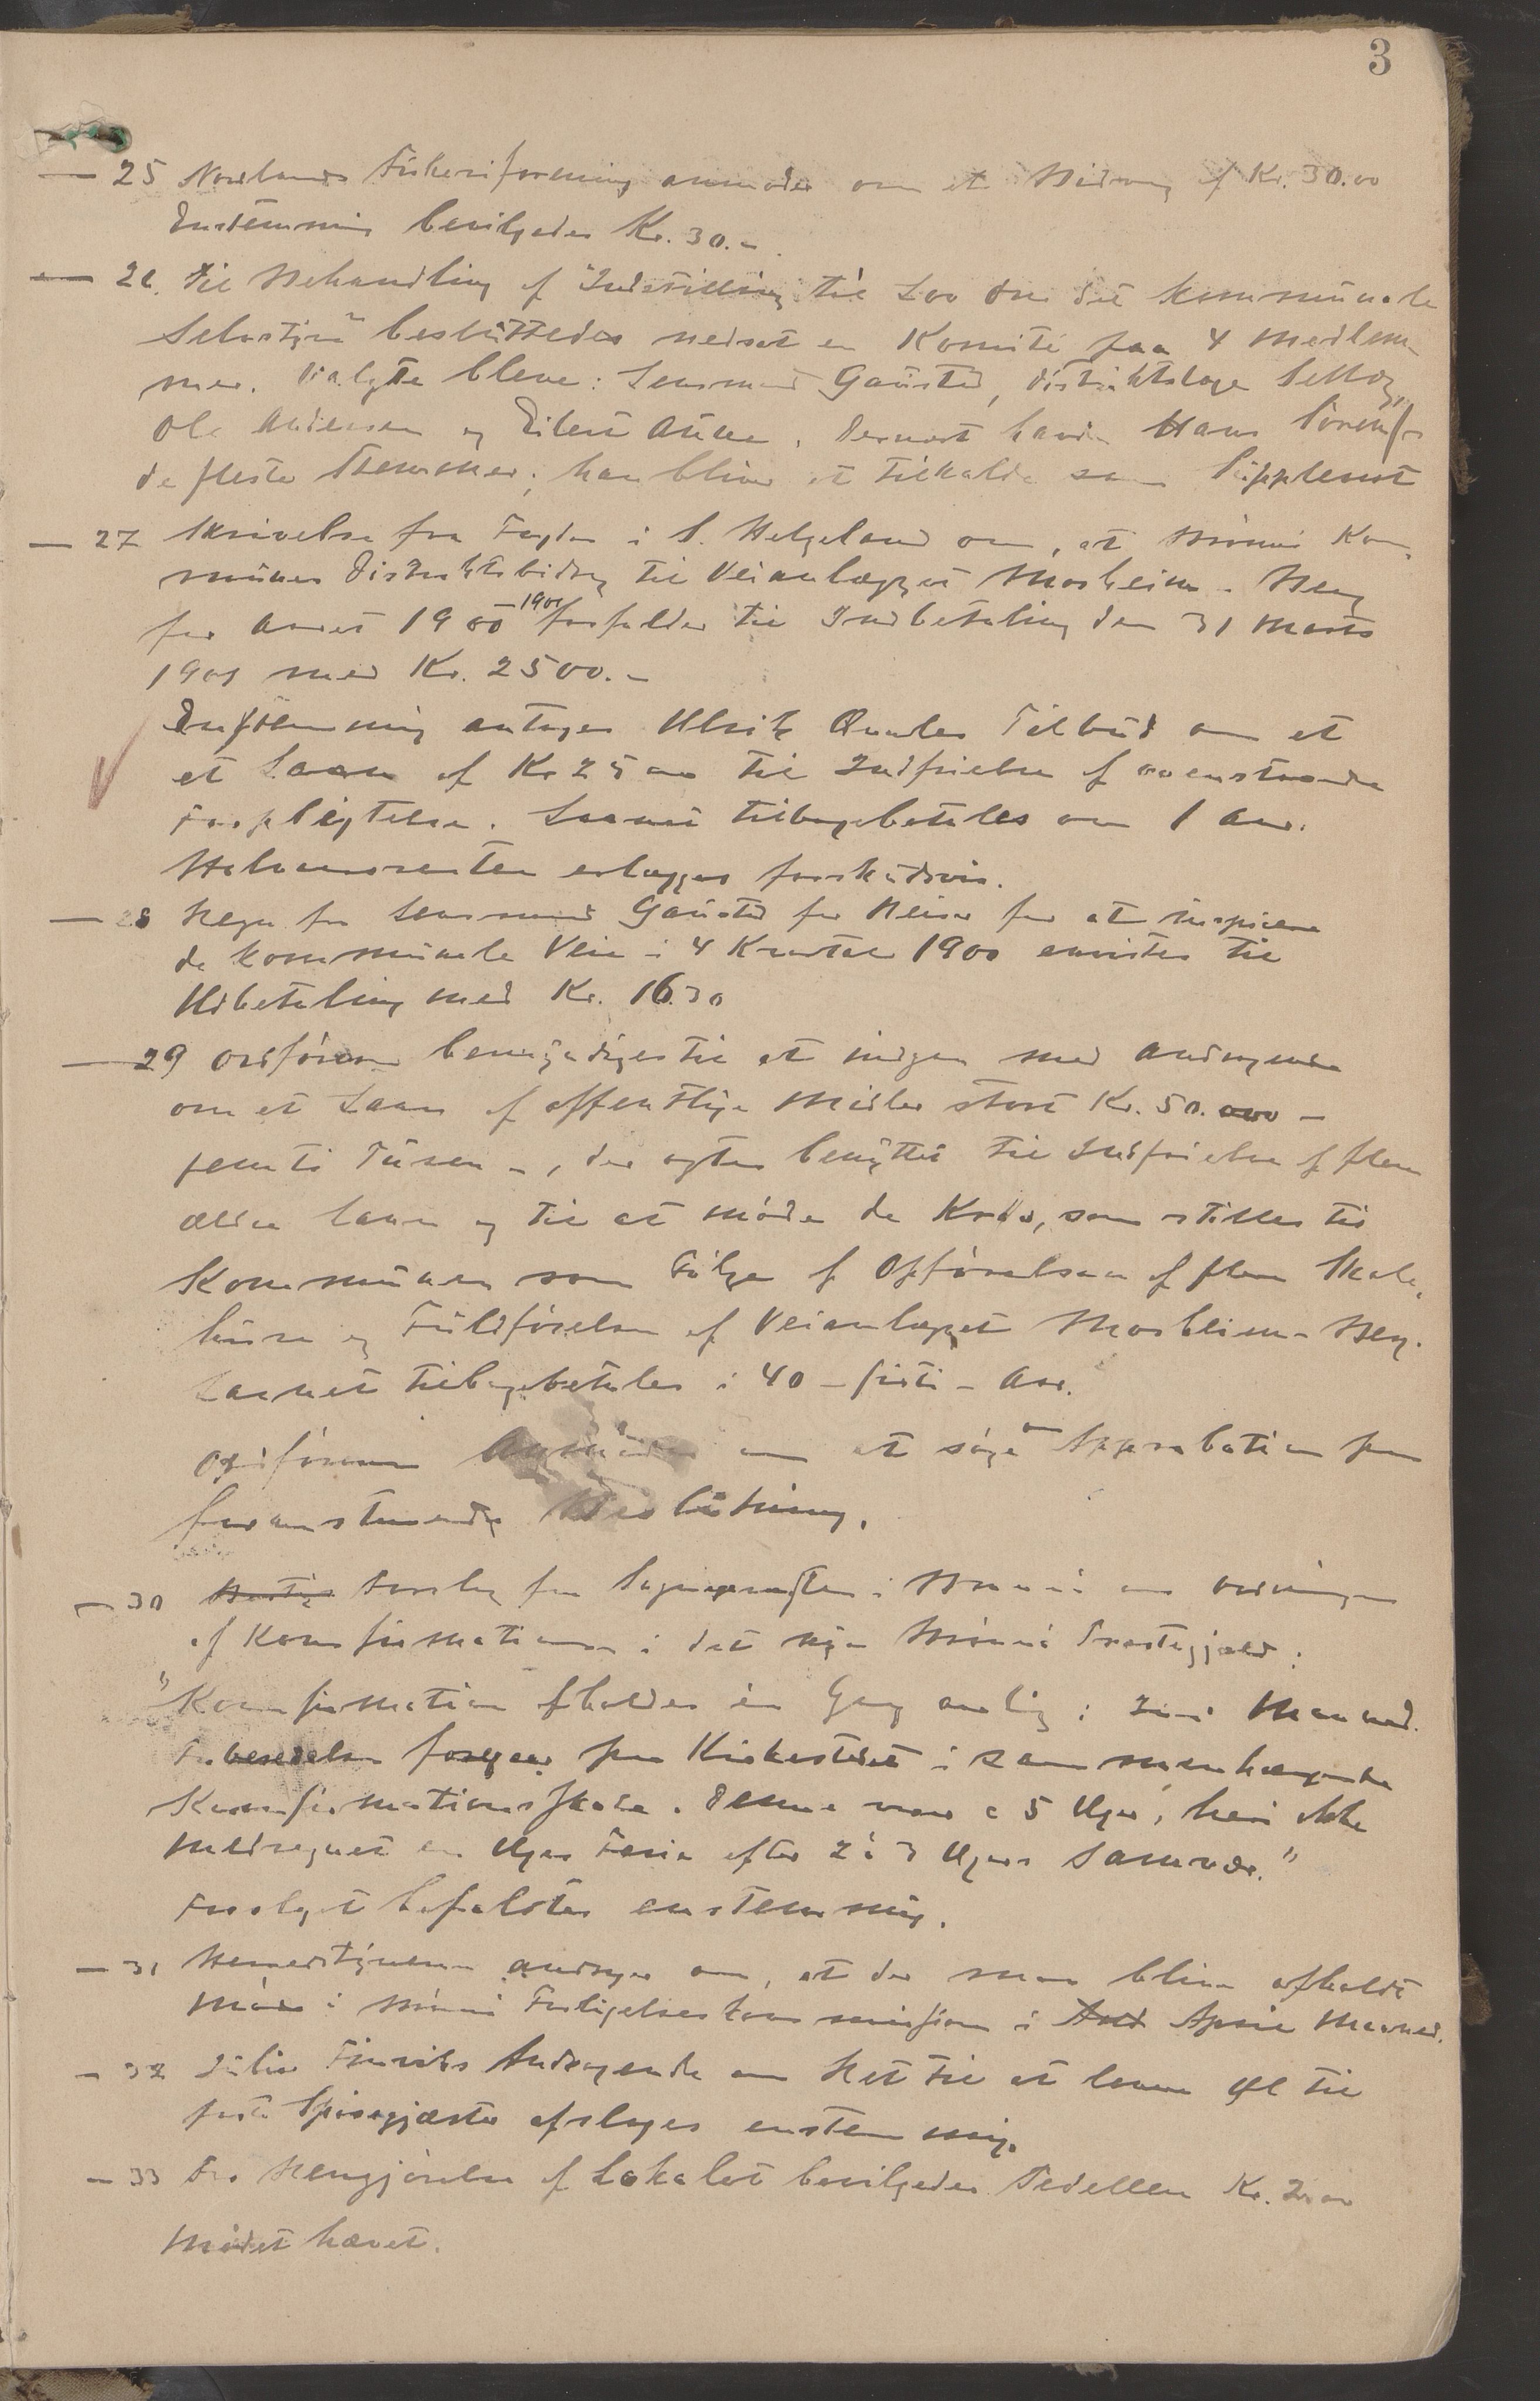 3
— 25 Nordlands Fiskeriforening anmoder om et Bidrag af Kr. 30.00
Enstemmig bevilgedes Kr. 30.-
— 26. Til Behandling af "Indstilling til Lov om det kommunale
Selvstyre" besluttedes nedsat en Komite paa 4 Medlem-
mer. Valgte bleve: Lensmand Gaustad, Distriktslæge
Ole Andersen og Eilert Aune. Dernæst havde Hans
de fleste Stemmer; han bliver at tilkalde som Suppleant
— 27 Skrivelse fra Fogden i S. Helgeland om, at Brønnø Kom-
munes Distriktsbidrag til Veianlægget Mosheim - Berg
for Aaret 1900-1901 forfalder til Indbetaling den 31 Marts
1901 med Kr. 2500.-
Enstemmig antages Ulrik Qvales Tilbud om et
et Laan af Kr 2500 til Indfrielse af ovenstaaende
Forpligtelse. Laanet tilbagebetales om 1 Aar.
Halvaarsrenten erlægges forskudsvis.
— 28 Regn. fra Lensmand Gaustad for Reiser for at inspicere
de kommunale Veie i 4 Kvartal 1900 anvistes til
Udbetaling med Kr. 16.30
— 29 Ordføreren bemyndiges til at indgaa med Andragende
om et Laan af offentlige Midler stort Kr. 50.000 -
femti Tusen -, der agtes benyttet til Indfrielse af flere
ældre Laan og til at møde de Krav, som stilles til
Kommunen som Følge af Opførelsen af flere Skole-
huse og Fuldførelsen af Veianlægget Mosheim - Berg.
Laanet tilbagebetales i 40 - firti - Aar.
Ordføreren anmodes om at søge Approbation paa
foranstaaende Beslutning.
— 30 Forslag fra Sognepræsten i Brønnø om Ordningen
af Konfirmationen i det nye Brønnø Præstegjæld:
"Konfirmation afholdes én Gang aarlig i Juni Maaned.
Forberedelsen foregaar paa Kirkestedet i sammenhængende
Konfirmationsskole. Denne varer c 5 Uger, heri ikke
medregnet en Uges Ferie efter 2 à 3 Ugers Samvær."
Forslaget bifaldtes enstemmig.
— 31 Herredstyrerne andrager om, at der maa blive afholdt
Møde i Brønnø Forligelseskommission i April Maaned.
— 32 Andragende om Ret til at levere Øl til
faste Spisegjæster afslaaes enstemmig.
— 33 For Rengjørelse af Lokalet bevilgedes Pedellen Kr. 2.00
Mødet hævet.